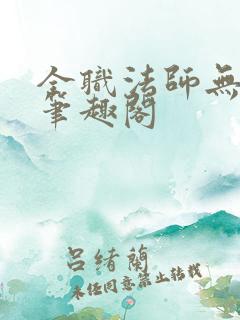 全職法師無
筆趣閣
呂緒蘭
未经同意禁止转载